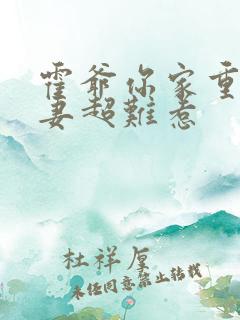 霍爺你家重
妻超難惹
杜祥厘
未任同意禁止转载